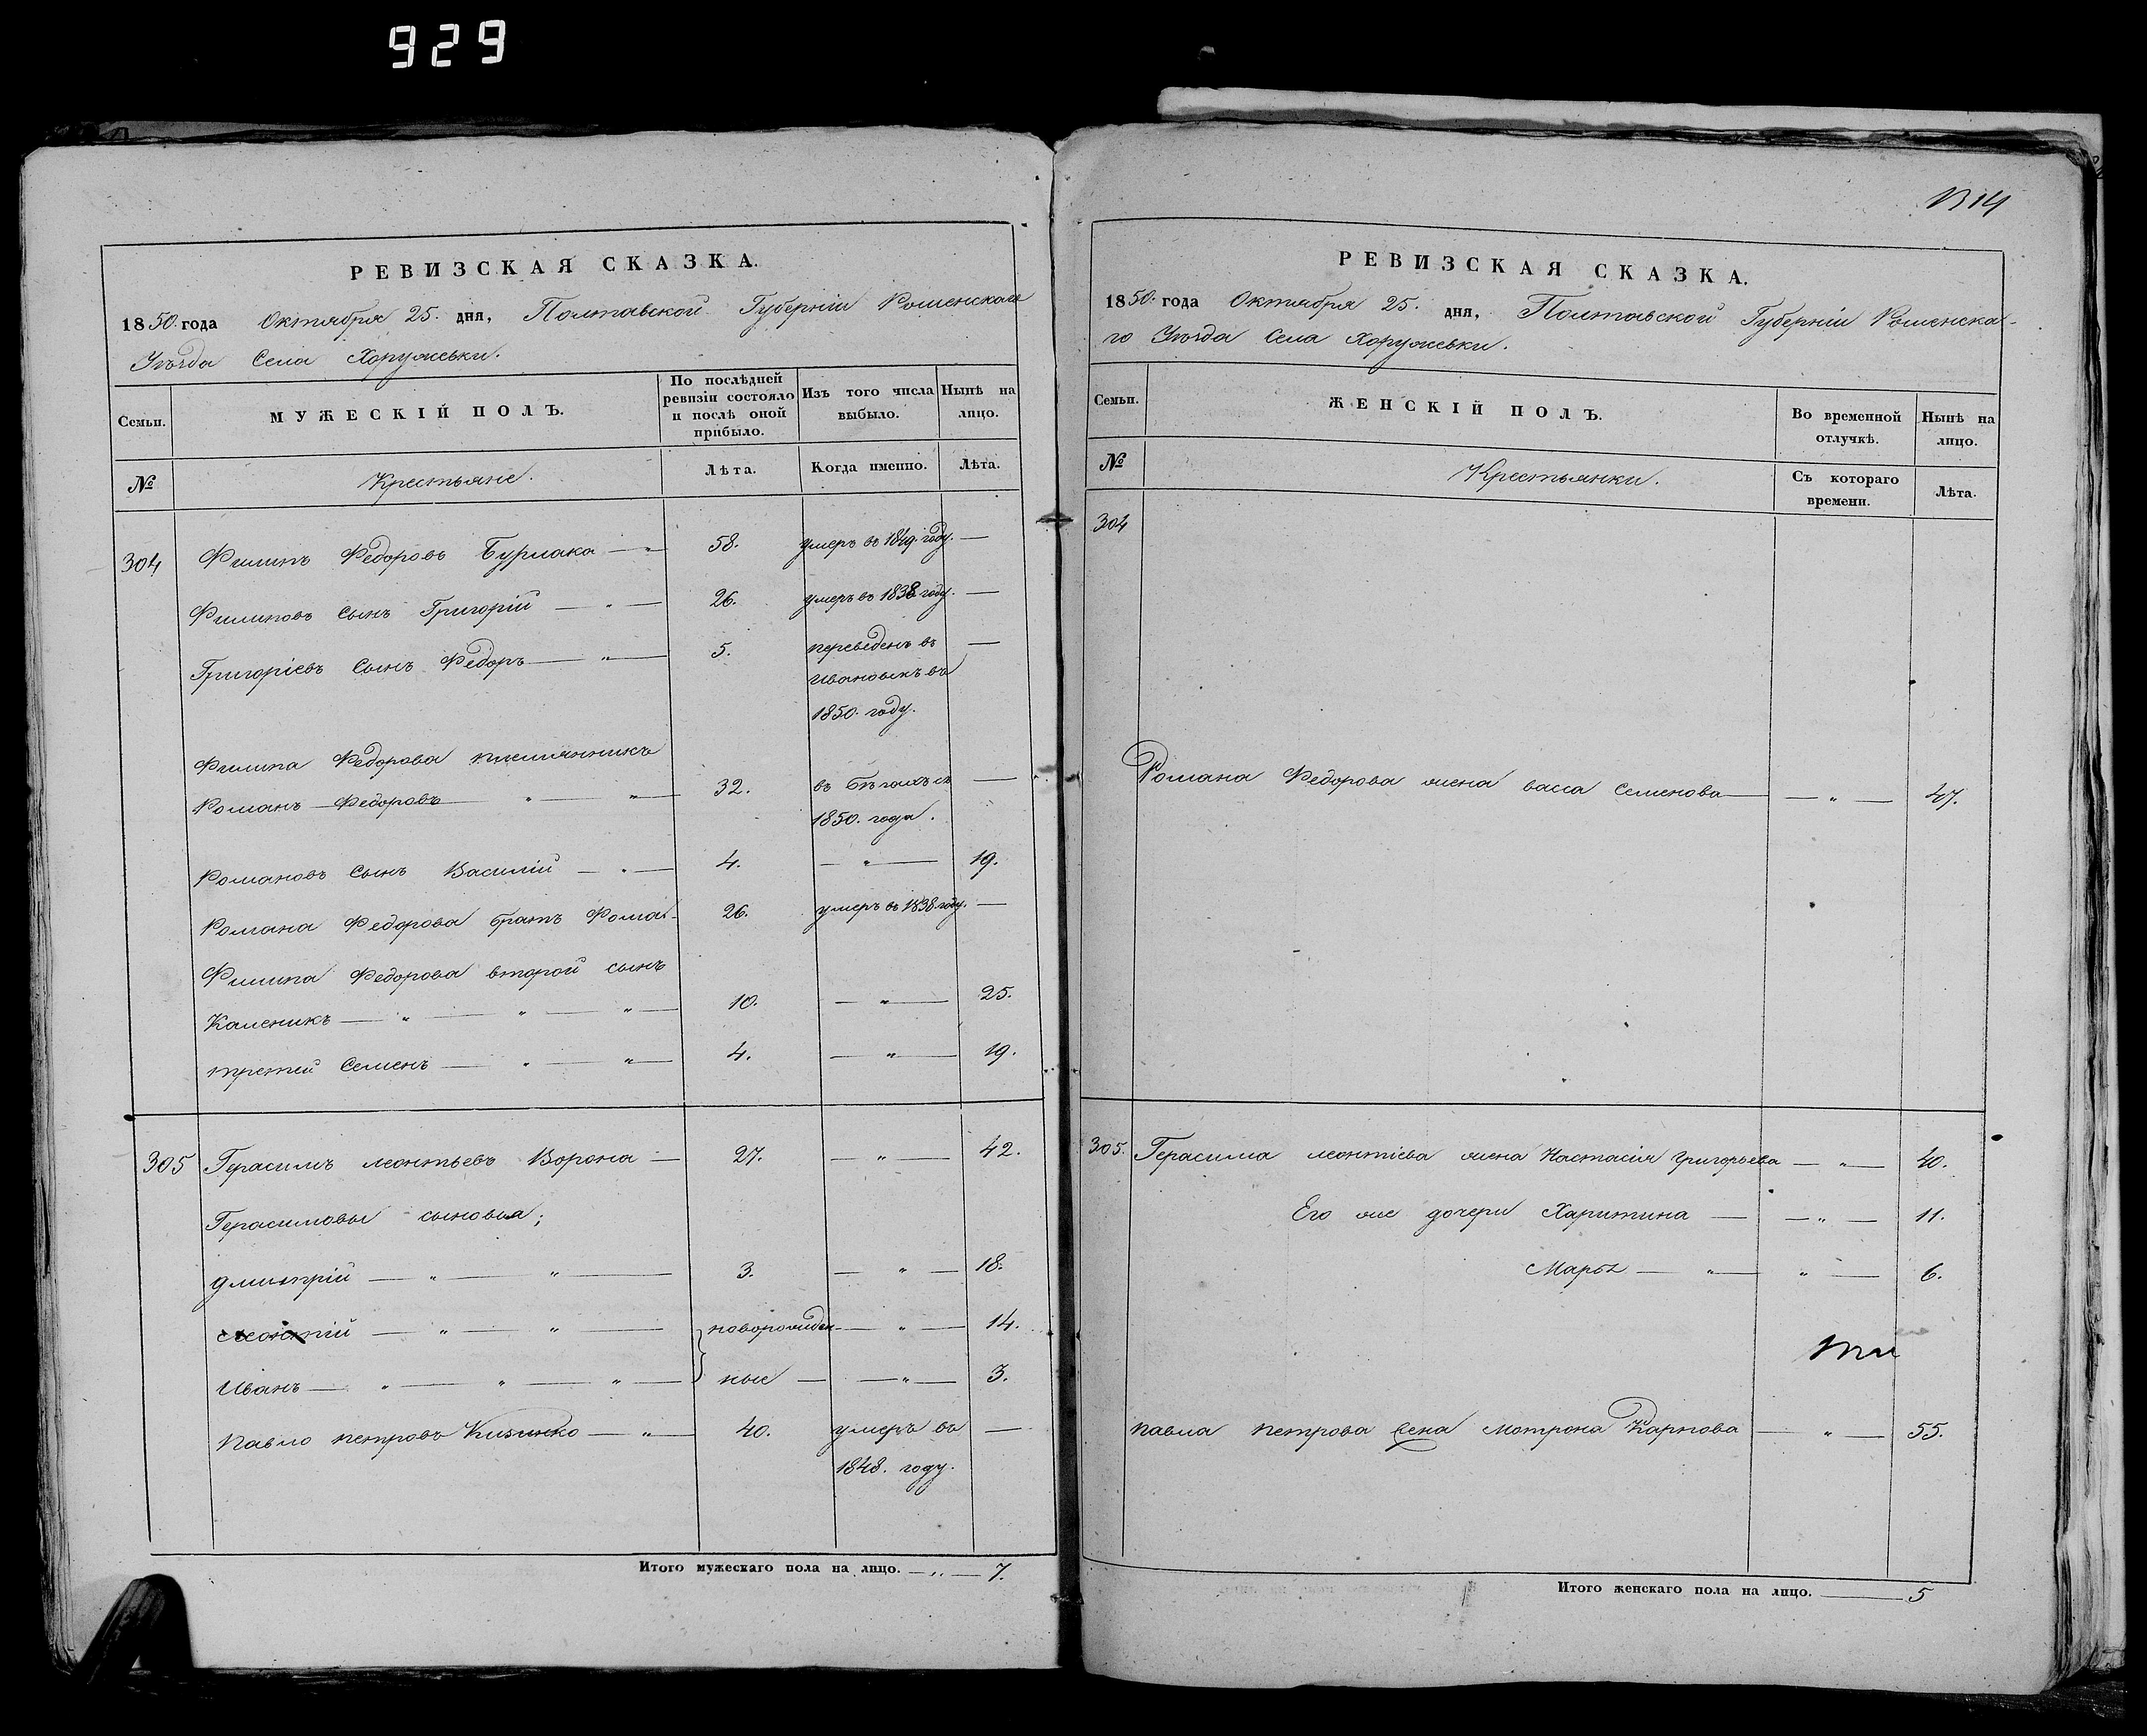 929
РЕВИЗСКАЯ СКАЗКА.
1850. года Октября 25. дня, Полтавской Губерніи Роменскаго
Уѣзда Села Хоружевки.
Семьи. МУЖЕСКІЙ ПОЛЪ. По послѣдней ревизіи состояло и послѣ оной прибыло. Изъ того числа выбыло. Нынѣ на лицо.
№ Крестьяне. Лѣта. Когда именно. Лѣта.
304 Филипъ Федоровъ Бурлака — „ 58. умеръ въ 1849. году. —
Филиповъ сынъ Григорій — „ — 26. умеръ въ 1838 году. —
Григоріевъ сынъ Федоръ — „ — 5. переведенъ въ —
Ивановскъ въ
1850. году.
Филипа Федорова племянникъ
Романъ Федоровъ — „ — „ — 32. въ бѣгахъ съ —
1850. года.
Романовъ сынъ Василій — „ — 4. — „ — 19.
Романа Федорова братъ Фома - 26. умеръ въ 1838. году. —
Филипа Федорова второй сынъ
Каленикъ — „ — „ — „ — 10. — „ — 25.
третий Семенъ — „ — „ — 4. — „ — 19.
305 Герасимъ леонтьевъ Ворона — 27. — „ — 42.
Герасимовы сыновья;
дмитрій — „ — „ — 3. — „ — 18.
леонтій — „ — „ — новорожден- — „ — 14.
Иванъ — „ — „ — „ — ные — — „ — 3.
Павло петровъ — „ — 40. умеръ въ —
1848. году.
Итого мужескаго пола на лицо. — „ — 7.
1314
РЕВИЗСКАЯ СКАЗКА.
1850. года Октября 25. дня, Полтавской Губерніи Роменска-
го Уѣзда Села Хоружевки.
Семьи. ЖЕНСКІЙ ПОЛЪ. Во временной отлучкѣ. Нынѣ на лицо.
№ Крестьянки. Съ котораго времени. Лѣта.
304
Романа Федорова жена васса Семенова — — „ — 47.
305. Герасима леонтіева жена Настасія григорьева — „ — 40.
Его же дочери Харитина — — „ — 11.
Марья — „ — „ — 6.
павла петрова жена мотрона Карпова — „ — 55.
Итого женскаго пола на лицо. — 5